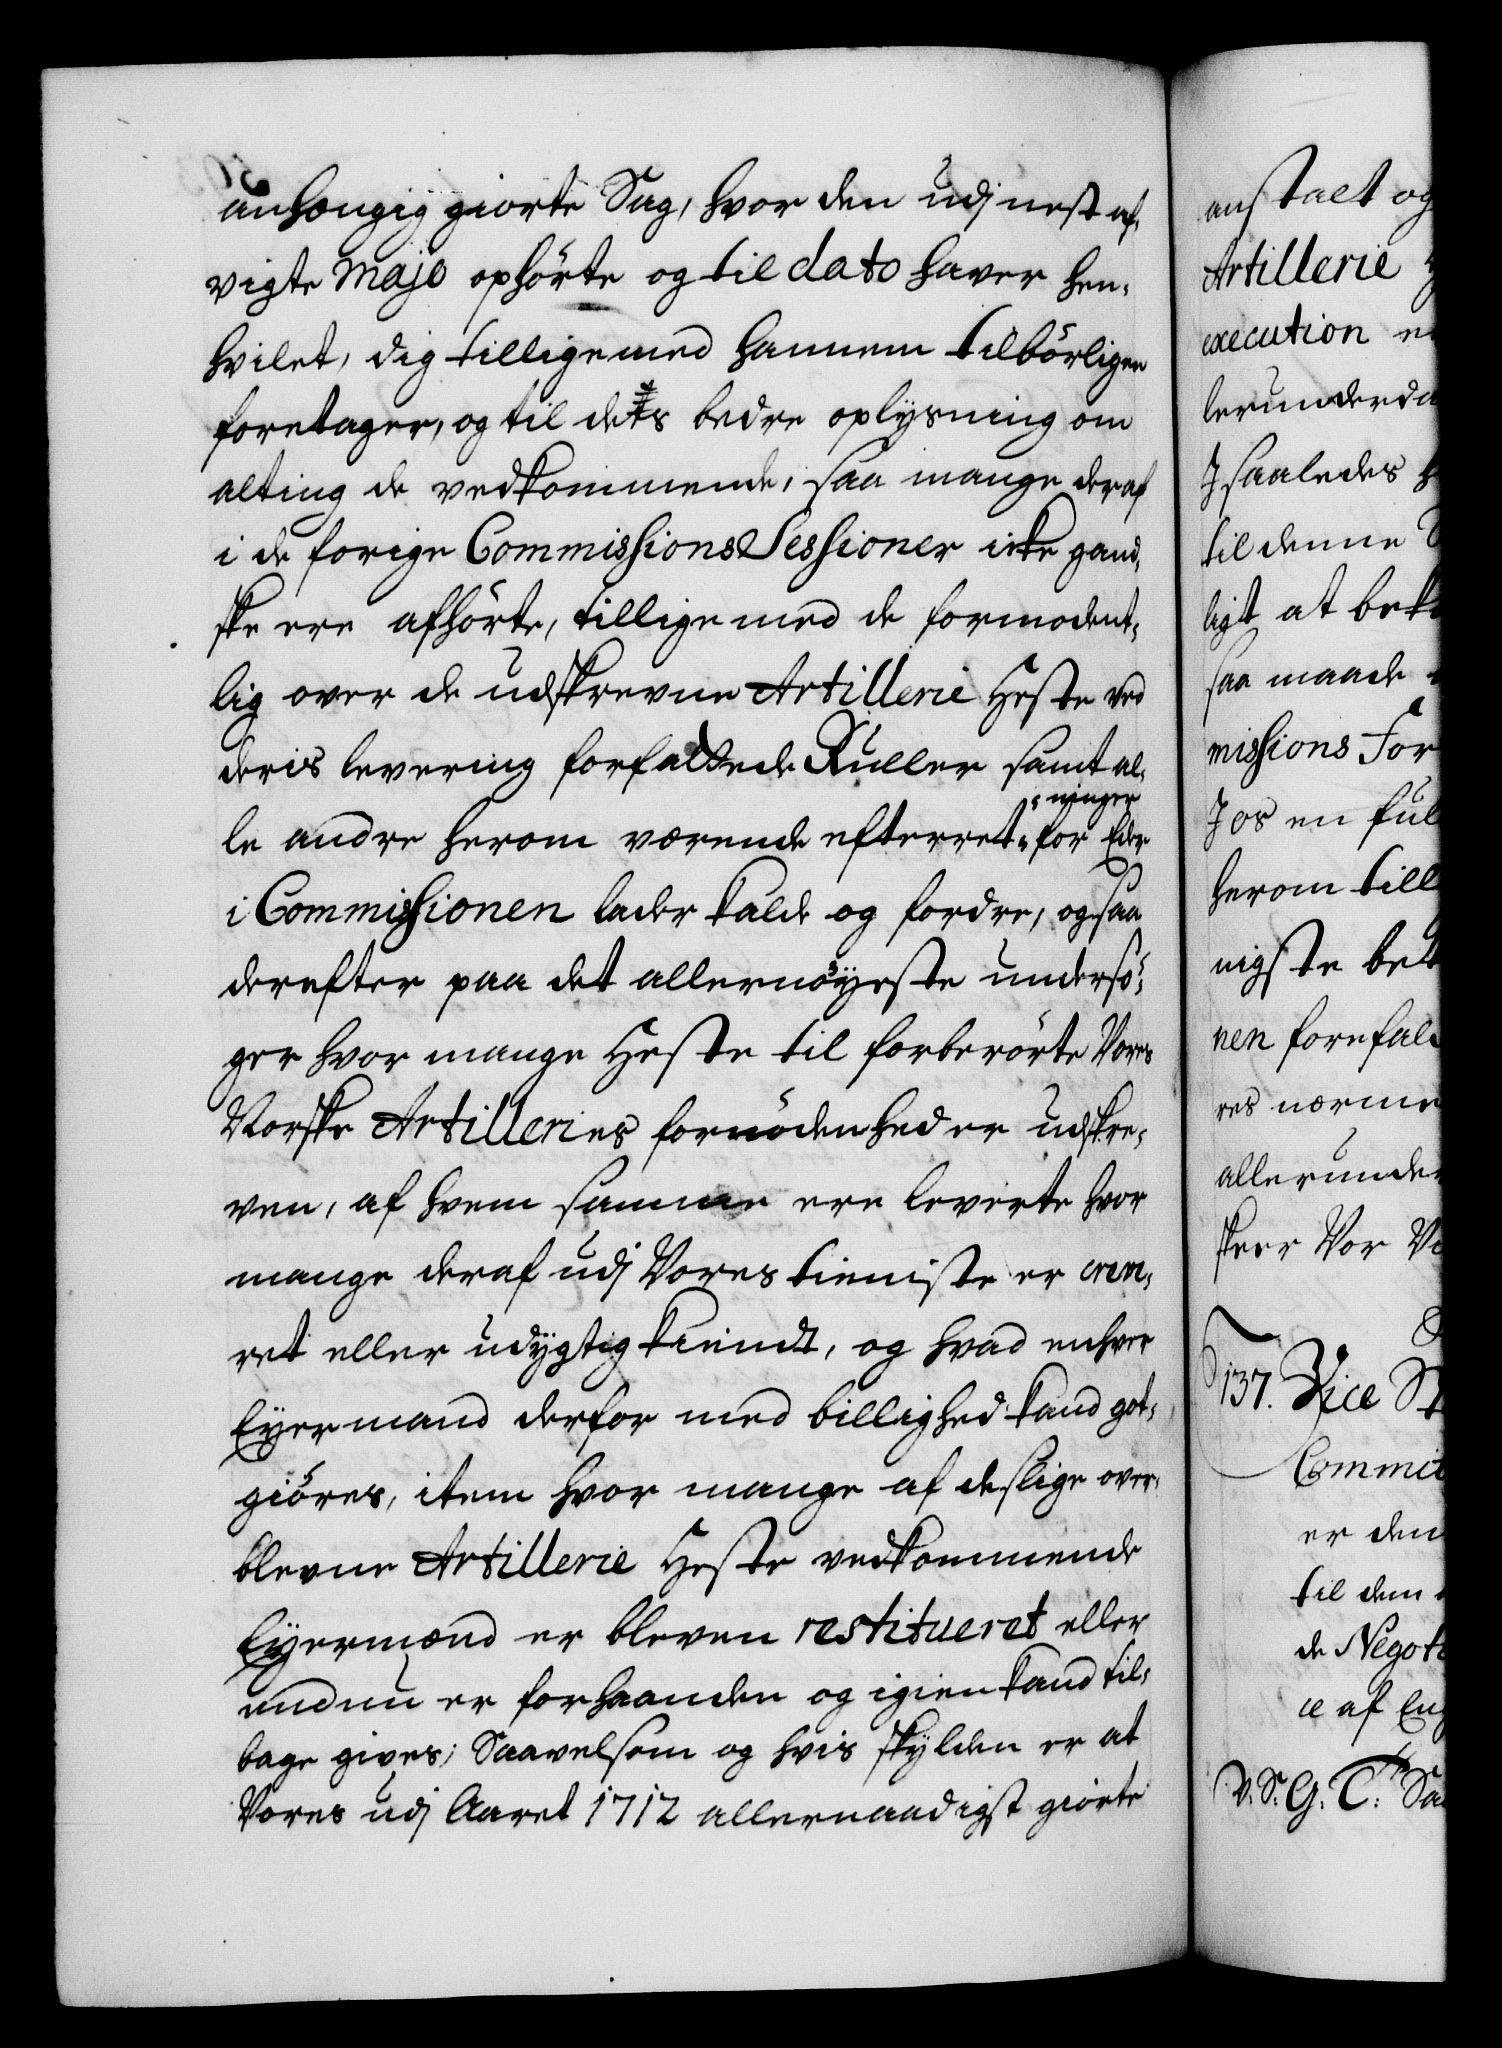 anhængig giorte Sag, hvor den udj nest af-
vigte Majo ophörte og til dato haver hen-
hvilet, dig tilligemed hannem tilbörligen
foretager, og til dets bedre oplysning om
alting de vedkommende, saa mange deraf
i de forige Commissions Sessioner icke gand-
ske ere afhörte, tilligemed de formodent-
lig over de udskrevne Artillerie Heste ved
deris levering forfattede Ruller samt al-
le andre herom værende efterret-ninger for Eder
i Commissionen lader kalde og fordre, og saa
derefter paa det allernöyeste undersö-
ger hvor mange Heste til forberörte Vores
Norske Artilleries fornödenhed er udskre-
ven, af hvem samme ere leverte hvor
mange deraf udj Vores tieniste er crep-
ret eller udygtig kiendt, og hvad enhver
Eyermand derfor med billighed kand got-
giöres, item hvor mange af deslige over-
blevne Artillerie Heste vedkommende
Eyermænd er bleven restitueret eller
endnu er forhaanden og igien kand til-
bage gives; Saavelsom og hvis skylden er at
Vores udj Aaret 1712 allernaadigst giorte
anstalt og
Artillerie
execution
lerunderda
J saaledes
til denne
ligt at bek
saa maade
missions For
J os en ful
herom till
nigste bet
nen forefal
res nærme
allerunder
skeer Vor
137. Vice St
Commit
er den
til dem
de Negot
ce af Eng
V. S. G. C: Sa